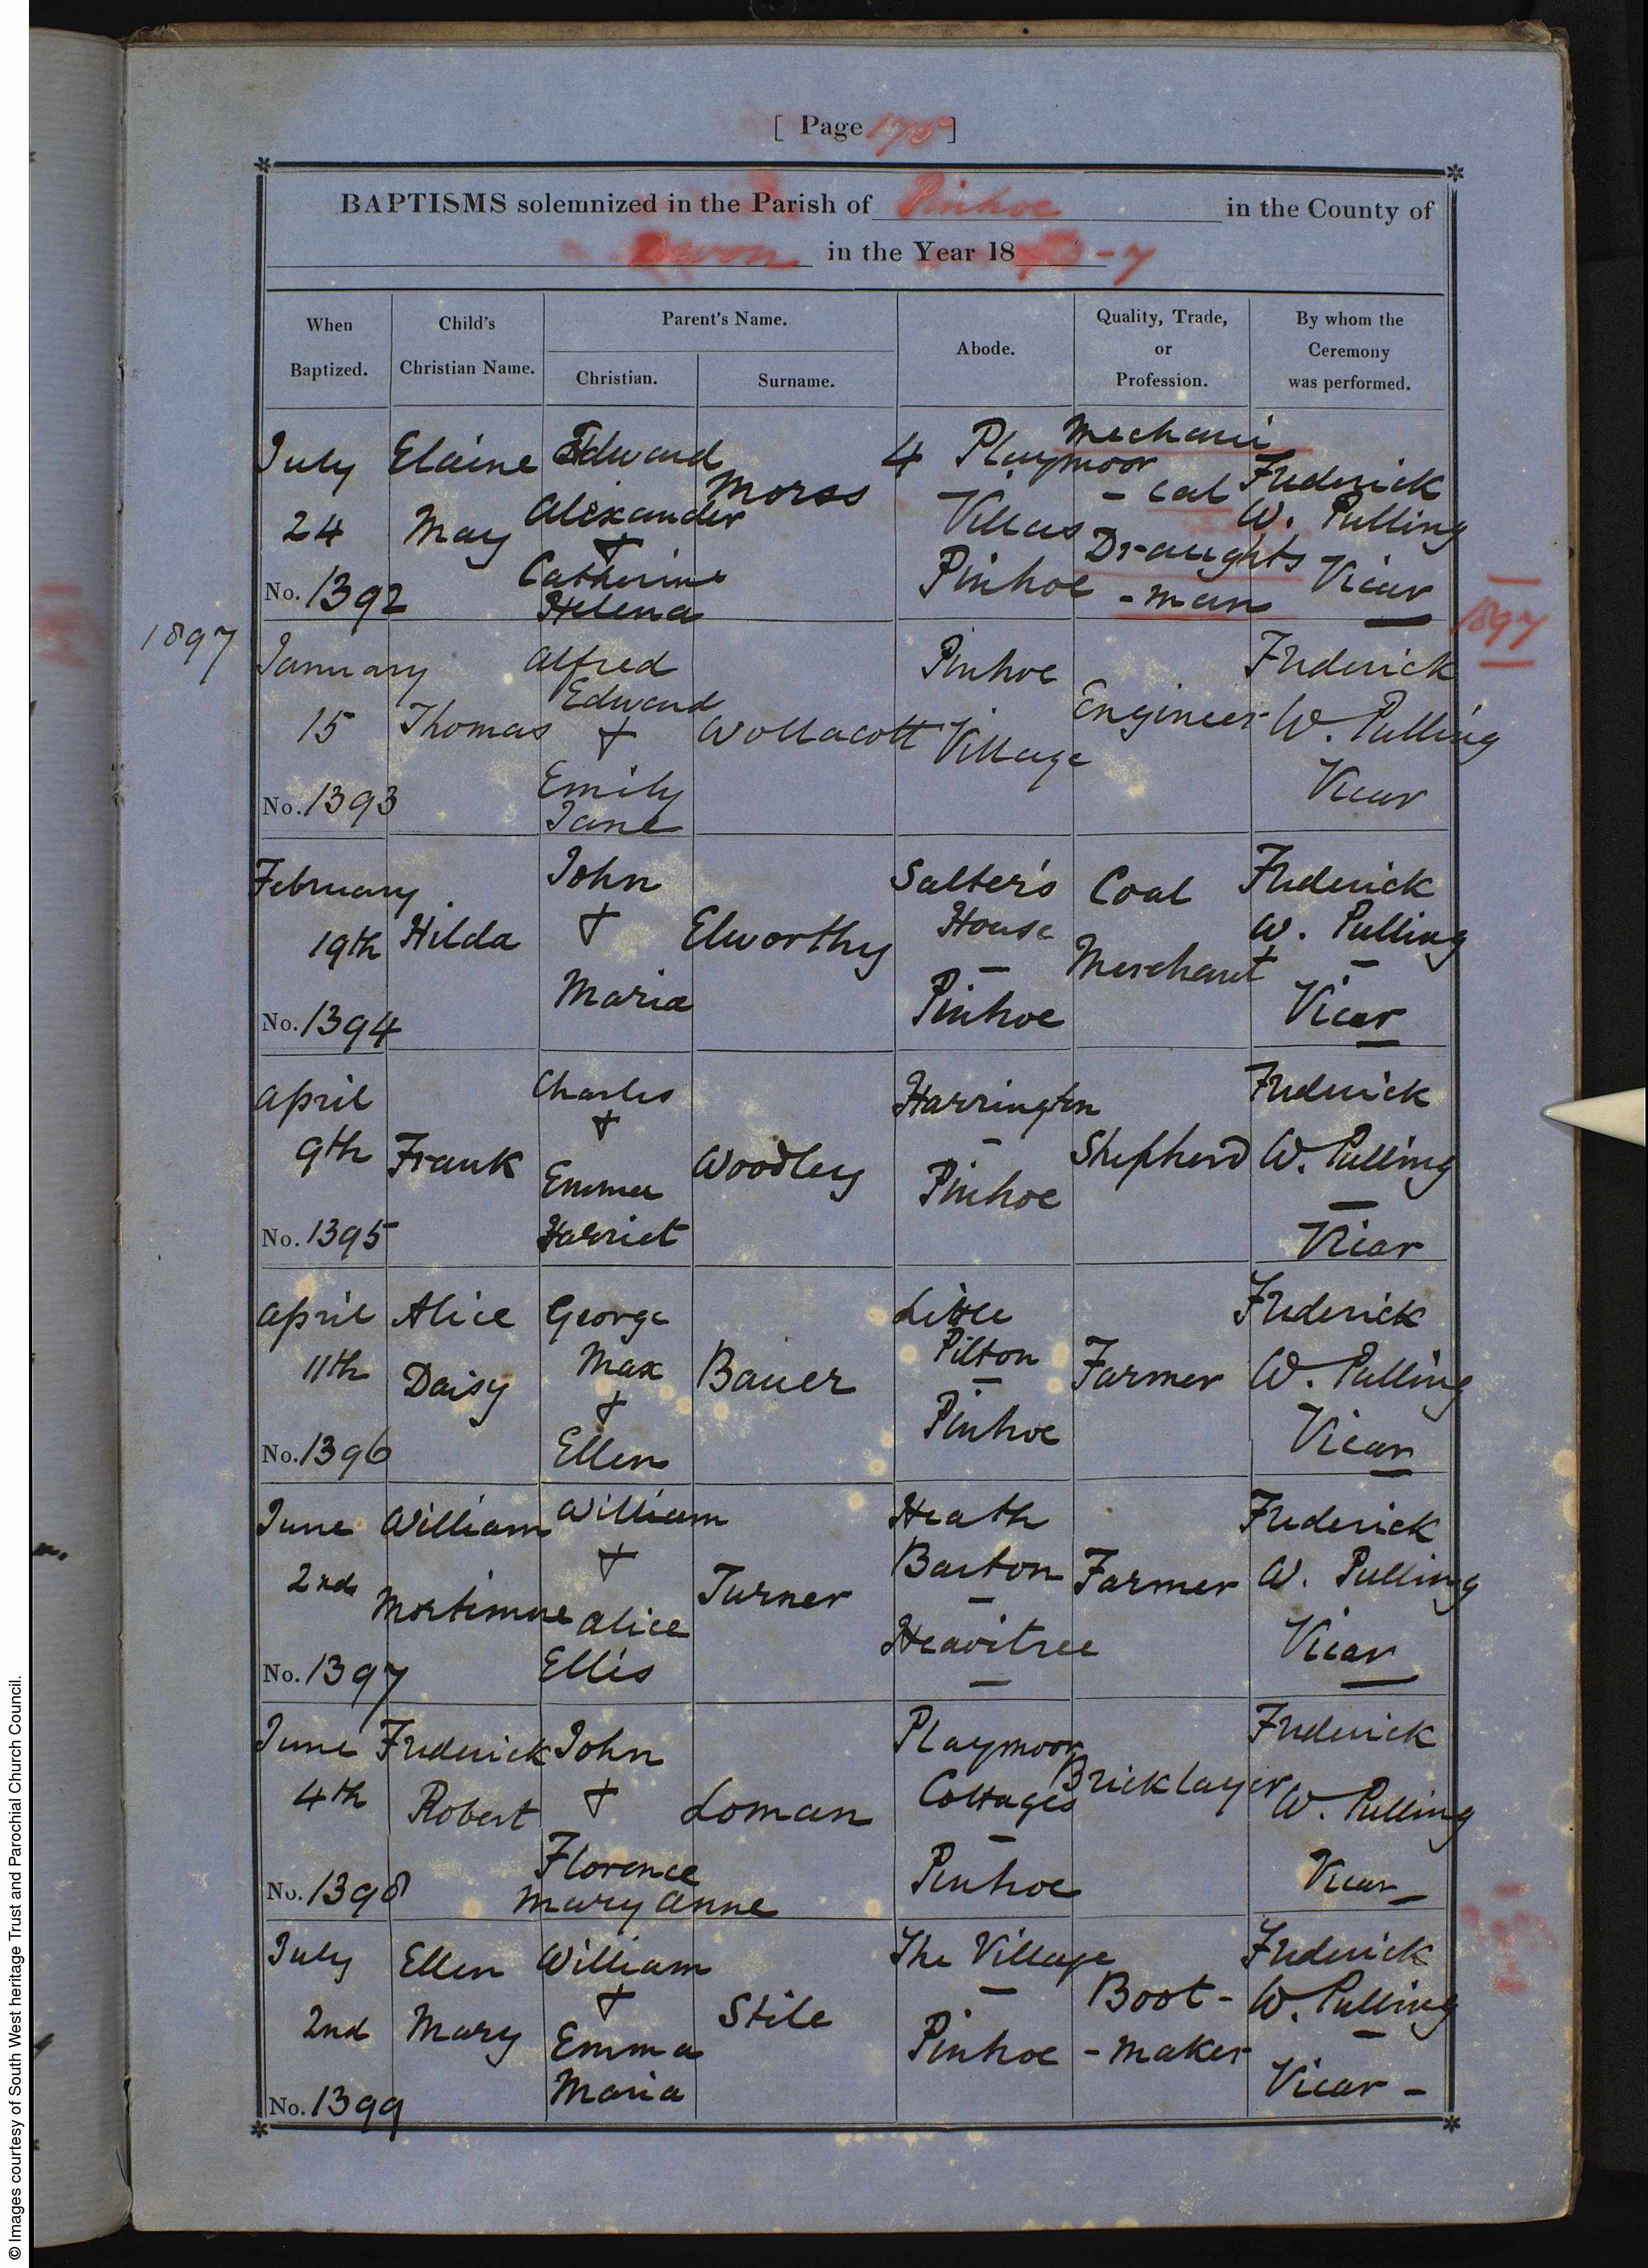 [ Page 175 ]
BAPTISMS solemnized in the Parish of Pinhoe in the County of
Devon in the Year 18 -7
When Baptized.
Child's Christian Name.
Parent's Name.
Christian.
Surname.
Abode.
Quality, Trade, or Profession.
By whom the Ceremony was performed.
July
24
No. 1392
Elaine
May
Edward
Alexander
+
Catherine
Helena
Morss
4 Playmoor
Villas
Pinhoe
Mechani
- cal
Draughts
- man
Frederick
W. Pulling
Vicar
1897
1897
January
15
No. 1393
Thomas
Alfred
Edward
+
Emily
Jane
Wollacott
Pinhoe
Village
Engineer
Frederick
W. Pulling
Vicar
February
19th
No. 1394
Hilda
John
+
Maria
Elworthy
Salter's
House
-
Pinhoe
Coal
Merchant
Frederick
W. Pulling
-
Vicar
April
9th
No. 1395
Frank
Charles
+
Emma
Harriet
Woodley
Harrington
-
Pinhoe
Shepherd
Frederick
W. Pulling
-
Vicar
April
11th
No. 1396
Alice
Daisy
George
Max
+
Ellen
Bauer
Little
Pilton
-
Pinhoe
Farmer
Frederick
W. Pulling
Vicar
June
2nd
No. 1397
William
Mortimore
William
+
Alice
Ellis
Turner
Heath
Barton
-
Heavitree
-
Farmer
Frederick
W. Pulling
Vicar
June
4th
No. 1398
Frederick
Robert
John
+
Florence
Mary Anne
Loman
Playmoor
Cottages
-
Pinhoe
Bricklayer
Frederick
W. Pulling
Vicar
July
2nd
No. 1399
Ellen
Mary
William
+
Emma
Maria
Stile
The Village
-
Pinhoe
Boot-
-maker
Frederick
W. Pulling
-
Vicar -
© Images courtesy of South West heritage Trust and Parochial Church Council.